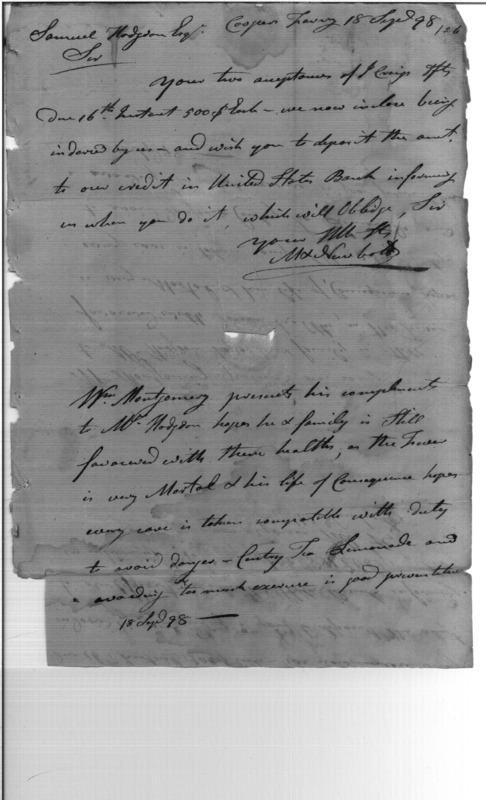 Samuel Hodgdon Esqr. Coopers Ferry 18 Sepr 98
126
Sir
Your two acceptances of J Craigs
Due 16th Instant 500$ Each – we now inclose being
indorsed by us – and wish you to deposit the amt.
to our credit in United States Bank informing
us when you do it, which will Oblidge, Sir
Your
M & Newbolds
Wm Montgomery presents his compliments
to Mr. Hodgdon hopes he & family is Still
favoured with there healths, as the Fever
is very Mortal & his life of Consequence hopes
every care is taken compatible with duty
to avoid danger – Tea Limonade and
avoiding too much exercise is good preventitive
18 Sepr 98 –